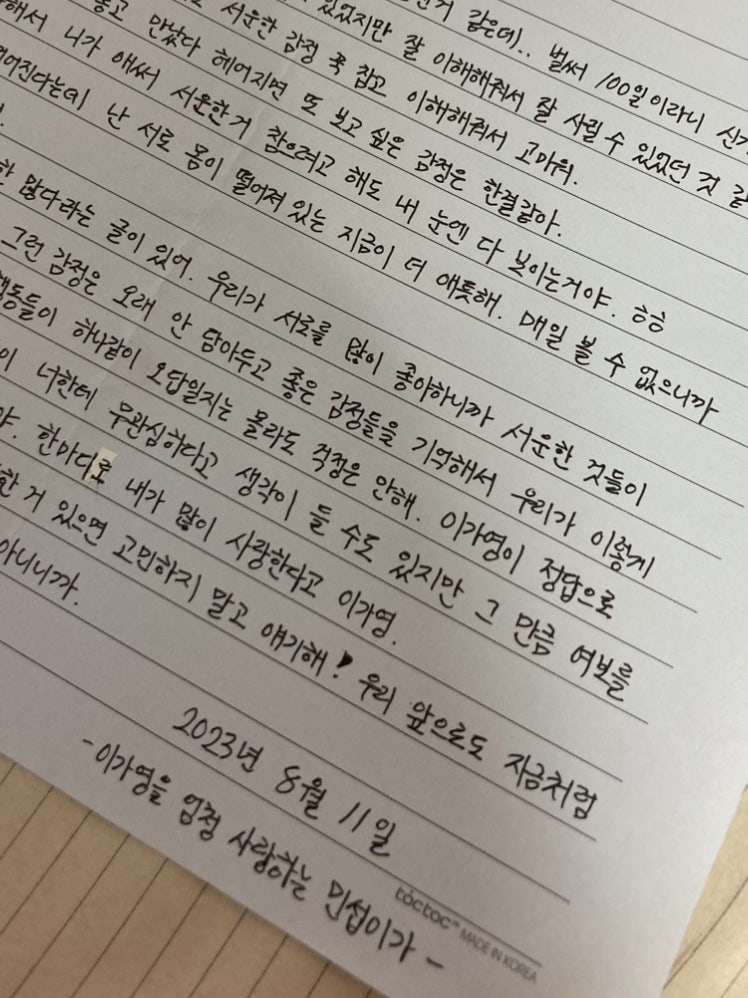 같은데).. 벌써 100일이라니
있었지만 잘 이해해줘서 잘 사귈 수 있었던 것 같
서운한 감정 꾹 잡고 이해해줘서 고마워.
만났다 헤어지면 또 보고 싶은 감정은 한결같아.
해서 니가 애써 서운한거 참으려고 해도 내 눈엔 다 보이는거야. ㅎㅎ
멀어진다는데 난 서로 몸이 떨어져 있는 지금이 더 애틋해. 매일 볼 수 없으니까
많다라는 글이 있어. 우리가 서로를 많이 좋아하니까 서운한 것들이
그런 감정은 오래 안 담아두고 좋은 감정들을 기억해서 우리가 이렇게
행동들이 하나같이 오답일지는 몰라도 걱정은 안해. 이가영이 정답으로
너한테 무관심하다고 생각이 들 수도 있지만 그 만큼 여보를
야. 한마디로 내가 많이 사랑한다고 이가영.
한 거 있으면 고민하지 말고 얘기해! 우리 앞으로도 지금처럼
아니니까.
2023년 8월 11일
-이가영을 엄청 사랑하는 민섭이가-
toctoc™ MADE IN KOREA